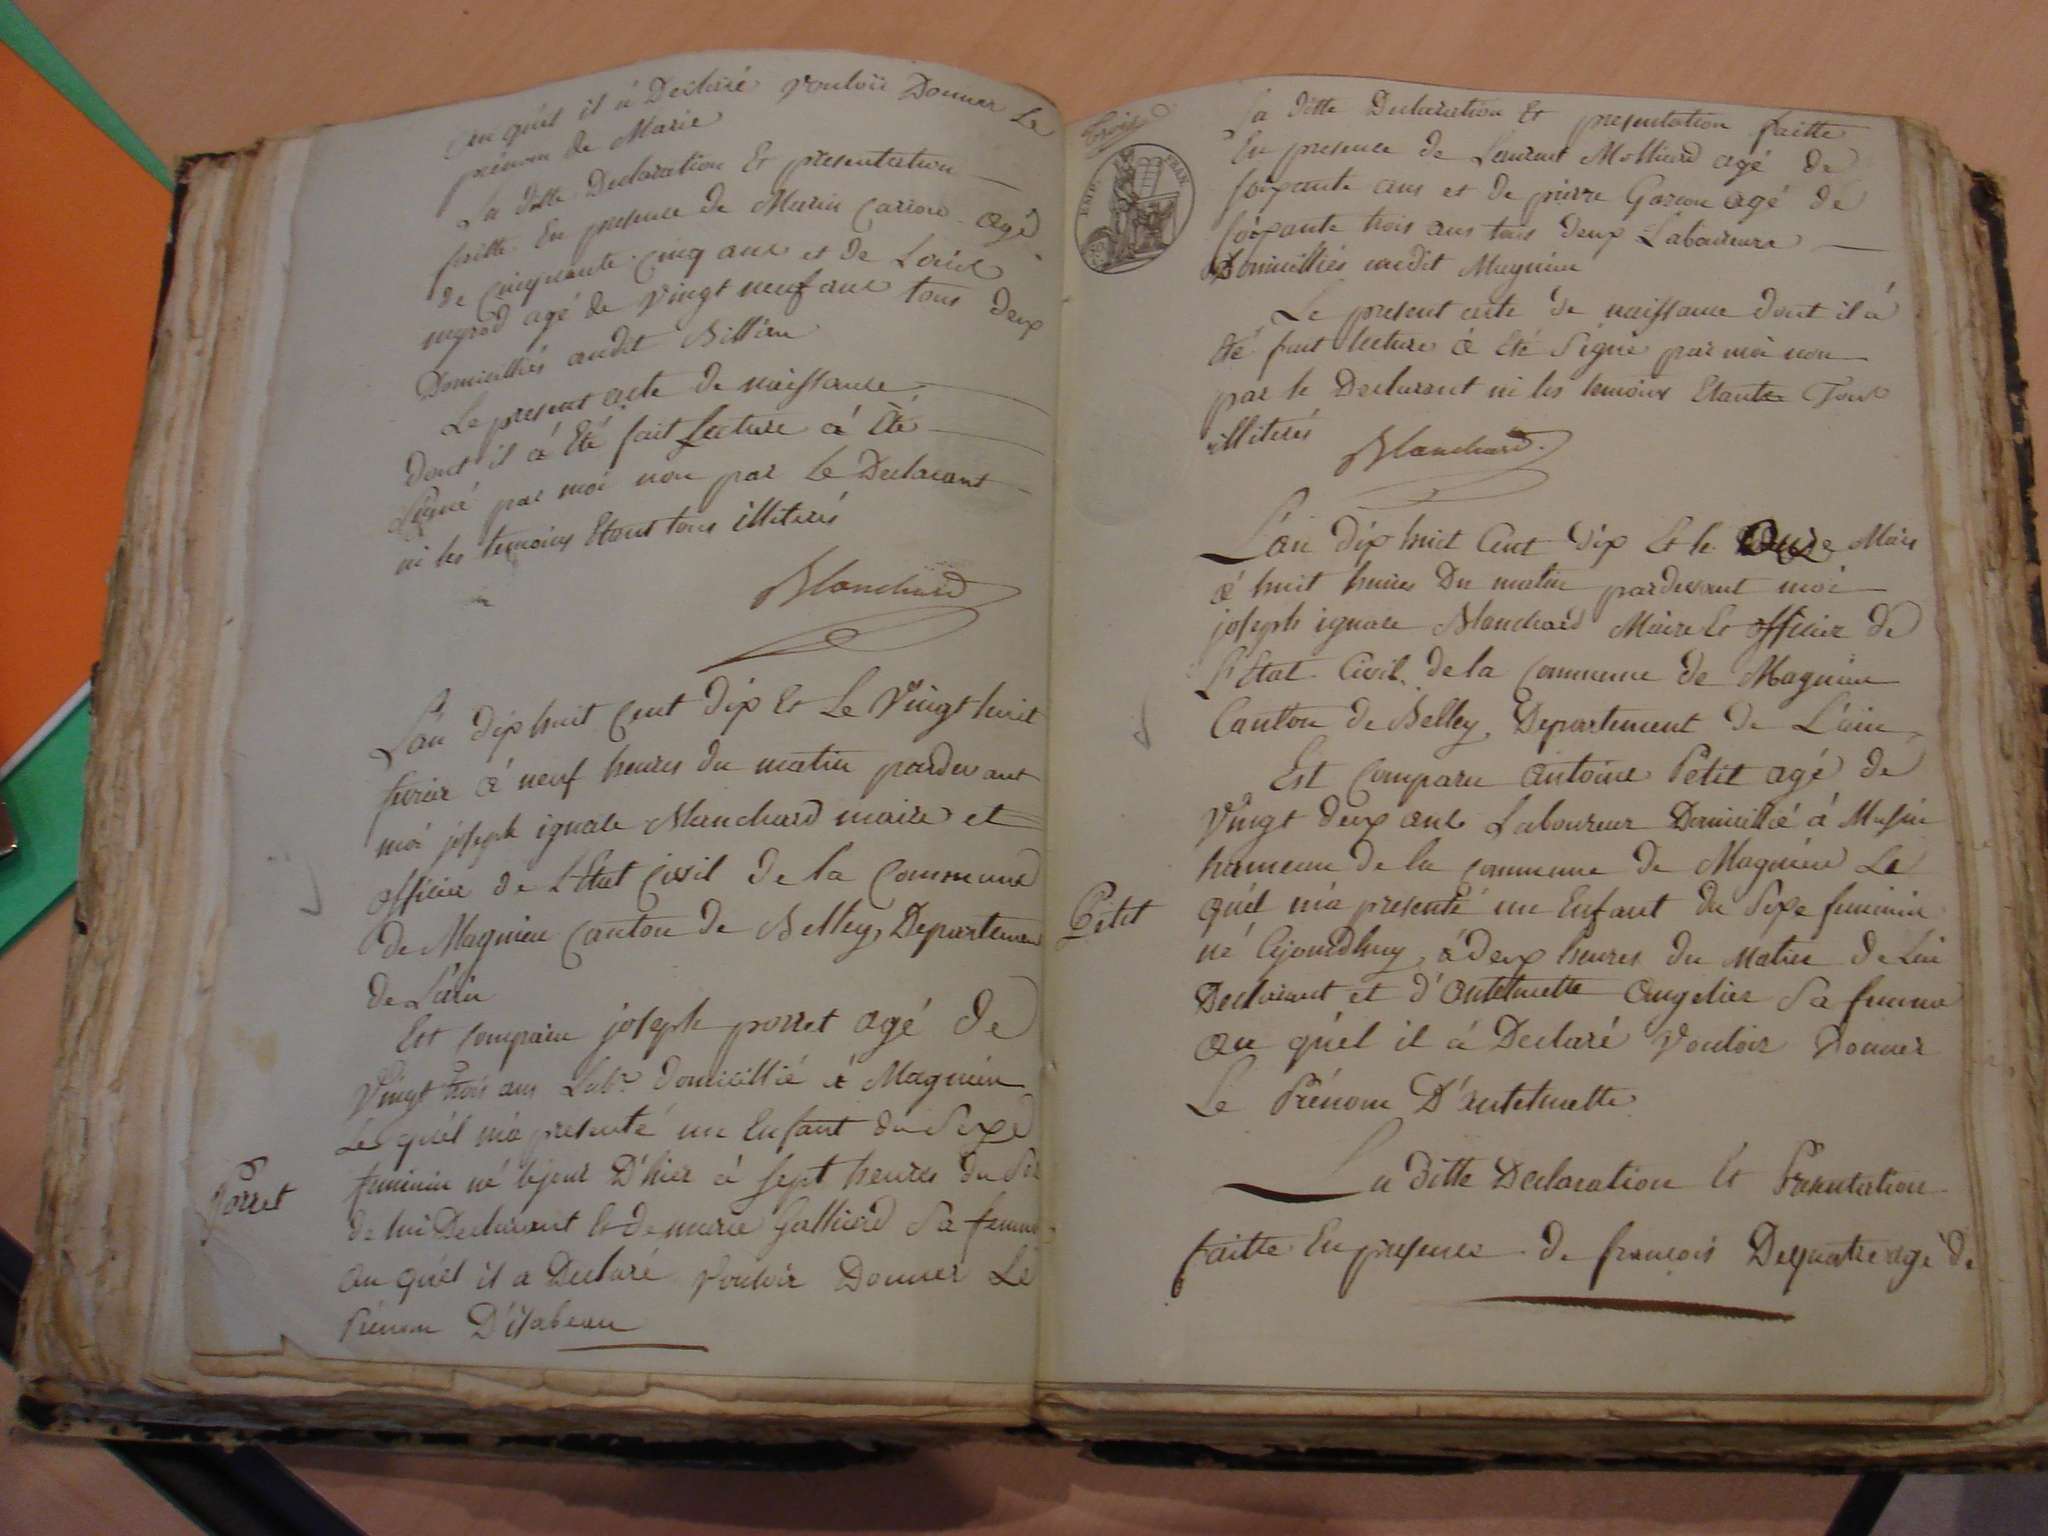 au quél il á Declaré vouloir Donner Le
prénom de Marie
La ditte Declaration Et presentation
faitte En presence de Marin Carion agé
de Cinquante Cinq ans et de Loüis
agé de vingt neuf ans tous deux
Domicilliés audit Billieu
Le present acte de naissance
dont il á Eté fait Lecture á Eté
Signé par moi non par Le Declarant
ni les temoins Etant tous illiterés
Blanchard
L'án dix huit Cent dix Et Le Vingt huit
fevrier á neuf heures du matin pardevant
moi joseph ignace Blanchard maire et
officier de L'Etat Civil de la Commune
de Magnieu Canton de Belley, Departement
de L'ain
Est Comparu joseph porret agé de
Vingt trois ans Lab.r domicillié á Magnieu
Le quél m'a présenté un Enfant du Sexe
feminin né le jour D'hier á sept heures du Soir
de lui Declarant Et de marie Galliard Sa femme
au quél il a Declaré Vouloir Donner Le
Prénom D'isabeau
Porret
EMP. FRAN.
La ditte Declaration Et presentation faitte
En presence de Laurent Molliard agé de
soixante ans et de pierre Garion agé de
soixante trois ans tous deux Laboureurs
Domicilliés audit Magnieu
Le present acte de naissance dont il á
été fait lecture á Eté Signé par moi non
par le Declarant ni les temoins Etants Tous
illiterés
Blanchard.
L'án dix huit Cent dix Et le Onze Mars
á huit heures Du matin pardevant moi
joseph ignace Blanchard Maire Et officier de
L'Etat Civil de la Commune de Magnieu
Canton de Belley, Departement de L'ain
Est Comparu antoine Petit agé de
Vingt deux ans Laboureur Domicillié á Musin
hameau de la Commune de Magnieu Le
quél m'a presenté un Enfant du Sexe feminin
né Ajourdhuy á deux heures du Matin de Lui
Declarant et d'antelmette angelier Sa femme
au quél il á Declaré Vouloir Donner
Le Prénom D'antelmette
Petit
La ditte Declaration Et Présentation
faitte En presence de françois Dequatre agé de